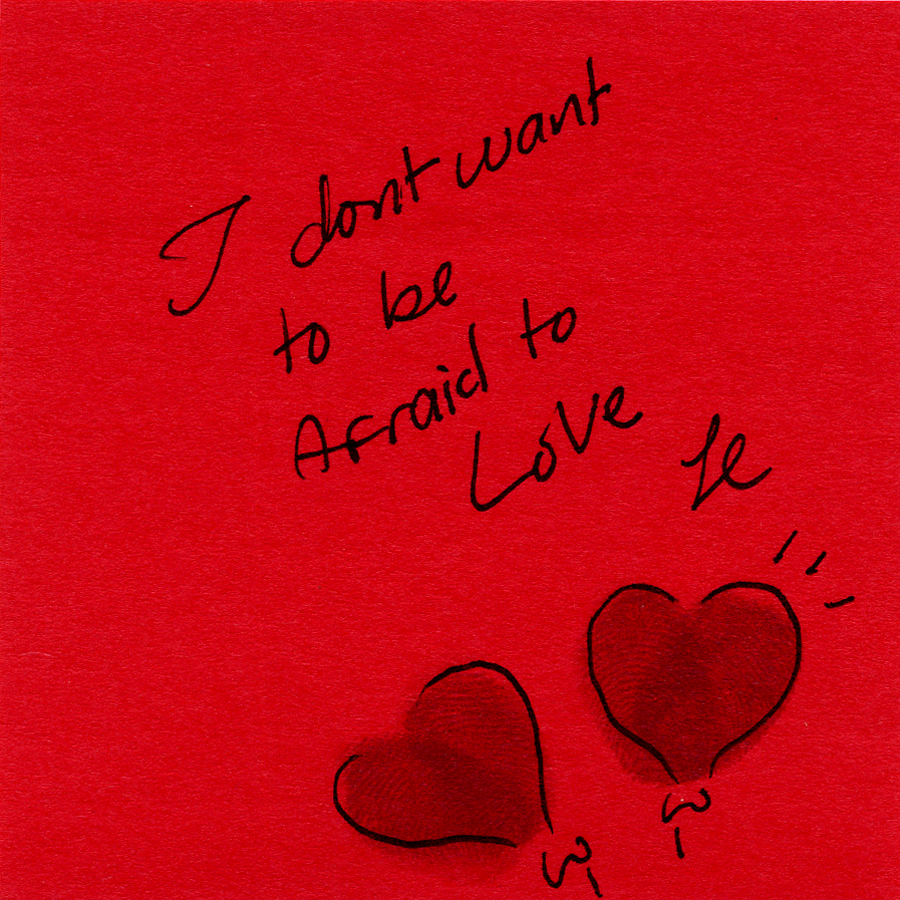 I dont want
to be
Afraid to
Love